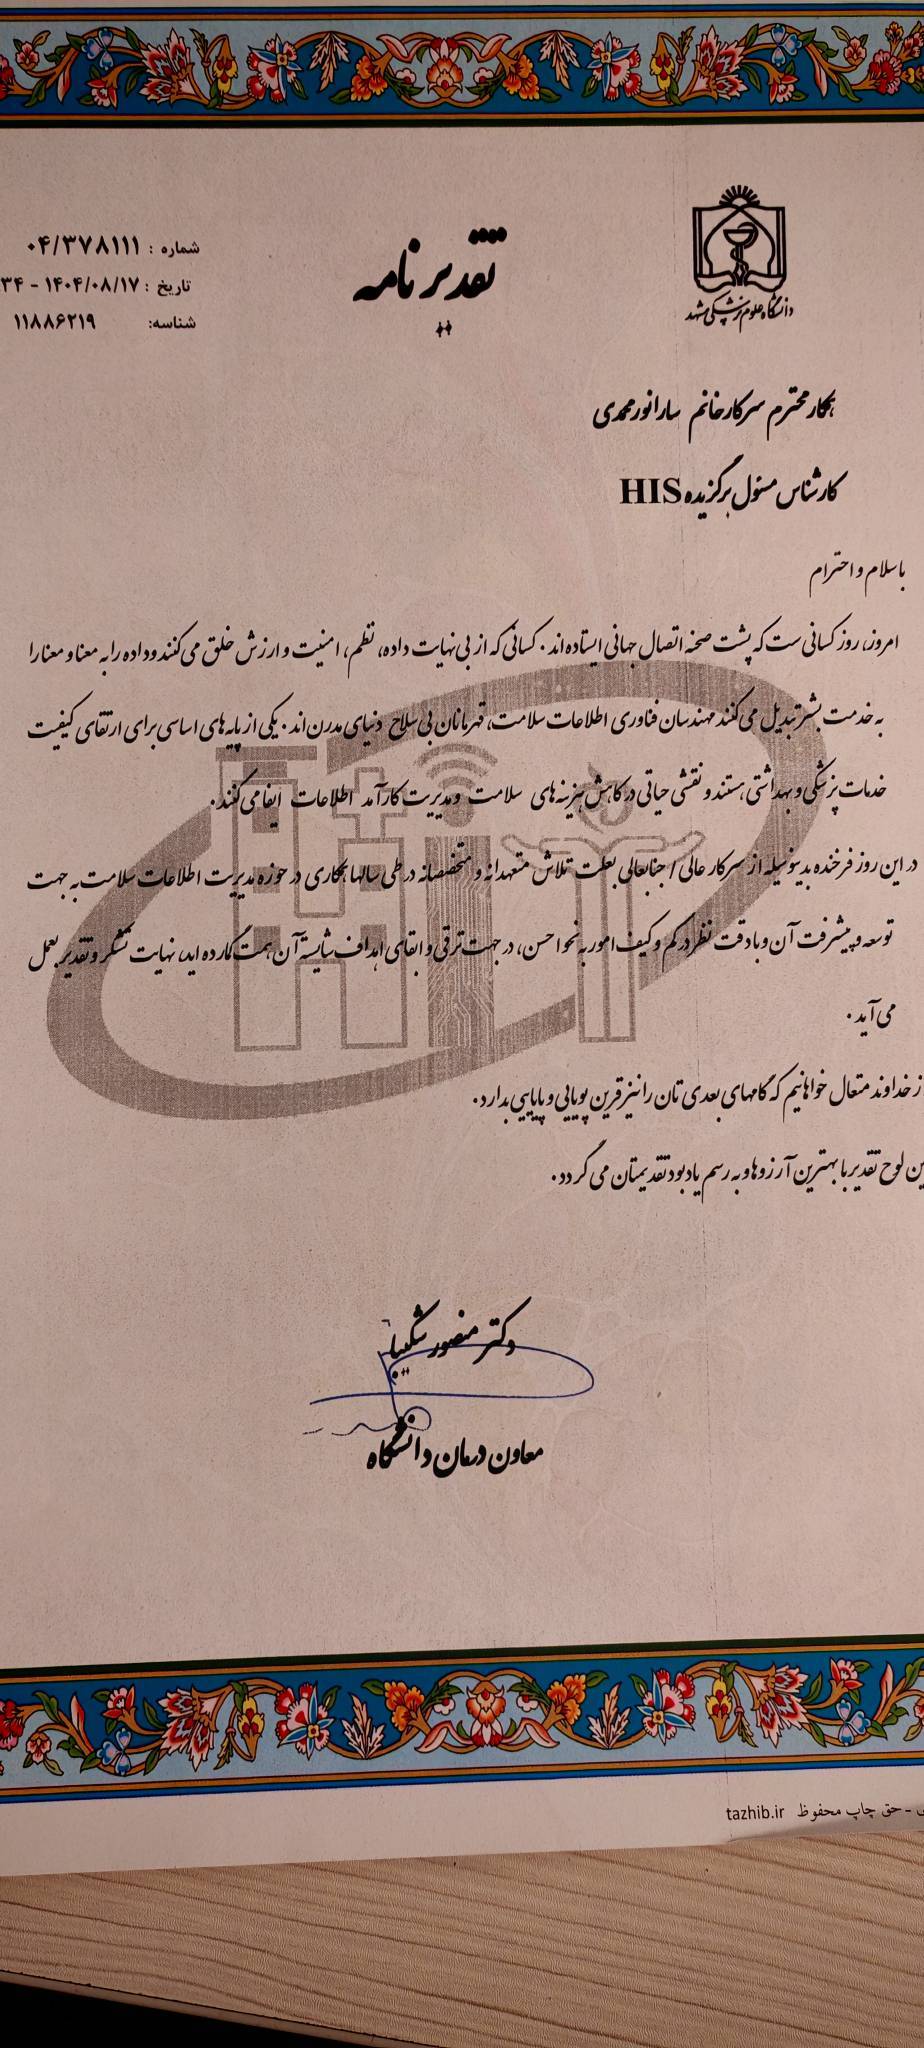 دانشگاه علوم پزشکی مشهد
تقدیرنامه
شماره : ۰۴/۳۷۸۱۱۱
تاریخ : ۱۴۰۴/۰۸/۱۷ - ۳۴
شناسه: ۱۱۸۸۶۲۱۹
همکار محترم سرکار خانم سارا نورمحمدی
کارشناس مسئول برگزیده HIS
با سلام و احترام
امروز، روز کسانی ست که پشت صحنه اتصال جهانی ایستاده اند. کسانی که از بی نهایت داده، نظم، امنیت و ارزش خلق می کنند و داده را به معنا و معنا را
به خدمت بشر تبدیل می کنند مهندسان فناوری اطلاعات سلامت، قهرمانان بی سلاح دنیای مدرن اند. یکی از پایه های اساسی برای ارتقای کیفیت
خدمات پزشکی و بهداشتی هستند و نقشی حیاتی در کاهش هزینه های سلامت و مدیریت کارآمد اطلاعات ایفا می کنند.
در این روز فرخنده بدینوسیله از سرکار عالی / جنابعالی بعلت تلاش متعهدانه و متخصصانه در طی سالها همکاری در حوزه مدیریت اطلاعات سلامت به جهت
توسعه و پیشرفت آن و با دقت نظر در کم و کیف امور به نحو احسن، در جهت ترقی و ابقای اهداف شایسته آن همت گمارده اید، نهایت تشکر و تقدیر بعمل
می آید.
از خداوند متعال خواهانیم که گامهای بعدی تان را نیز قرین پویایی و پایایی بدارد.
این لوح تقدیر با بهترین آرزوها و به رسم یادبود تقدیمتان می گردد.
دکتر منصور شکیبا
معاون درمان دانشگاه
- حق چاپ محفوظ tazhib.ir